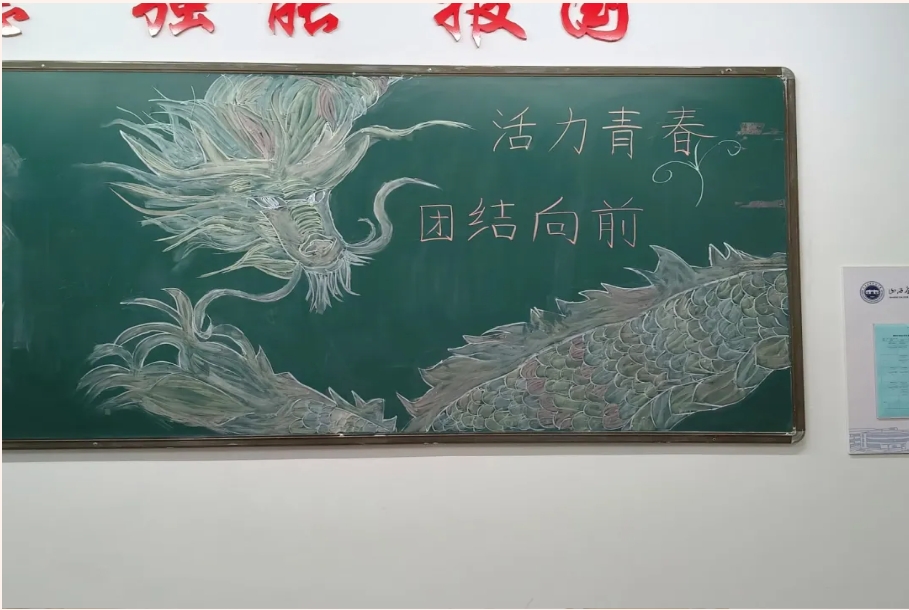 强能 报国
活力青春
团结向前